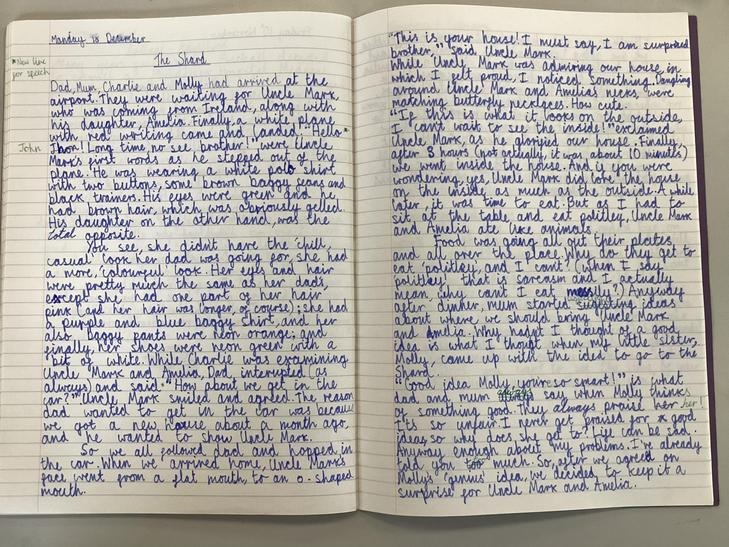 Monday 18 December
The Shard
*New line
for speech
Dad, Mum, Charlie and Molly had arrived at the
airport. They were waiting for Uncle Mark
who was coming from Ireland, along with
his daughter, Amelia. Finally, a white plane
with red writing came and landed. "Hello*
John
Jhon! Long time, no see brother!" were Uncle
Mark's first words as he stepped out of the
plane. He was wearing a white polo shirt
with two buttons, some brown baggy jeans and
black trainers. His eyes were green and he
had brown hair, which was obviously gelled.
His daughter on the other hand, was the
total opposite.
You see, she didn't have the 'chill,
casual' look her dad was going for, she had
a more, 'colourful' look. Her eyes and hair
were pretty much the same as her dads,
except she had one part of her hair
pink (and her hair was longer, of course); she had
a purple and blue baggy shirt, and her
also baggy pants were neon orange; and
finally, her shoes were neon green with a
bit of white. While Charlie was examining
Uncle Mark and Amelia, Dad, interupted (as
always) and said: "How about we get in the
car?" Uncle Mark smiled and agreed. The reason
dad wanted to get in the car was because
we got a new house about a month ago,
and he wanted to show Uncle Mark.
So we all followed dad and hopped in
the car. When we arrived home, Uncle Mark's
face went from a flat mouth, to an o-shaped
mouth.
"This is your house! I must say, I am surprised
brother," said, Uncle Mark.
While Uncle Mark was admiring our house, in
which I felt proud, I noticed something. Dangling
around Uncle Mark and Amelia's necks were
matching butterfly necklaces. How cute.
"If this is what it looks on the outside,
I can't wait to see the inside!" exclaimed
Uncle Mark, as he glorified our house. Finally,
after 3 hours (not actually, it was about 10 minutes)
we went inside the house. And if you were
wondering, yes, Uncle Mark did love the house
on the inside as much as the outside. A while
later, it was time to eat. But as I had to
sit at the table and eat politley, Uncle Mark
and Amelia ate like animals.
Food was going all out their plates
and all over the place. Why do they get to
eat 'politley', and I can't? (When I say
'politley' that is sarcasm and I, actually
mean, why can't I eat messily!) Anyway
after dinner, Mum started sugesting ideas
about where we should bring Uncle Mark
and Amelia. Why hadn't I thought of a good
idea is what I thought when my little sister,
Molly, came up with the idea to go to the
Shard.
"Good idea Molly, you're so smart!" is what
dad and mum always say when Molly thinks
of something good. They always praise her!
It's so unfair. I never get praised for good
ideas so why does she get to? Life can be sad.
Anyway enough about my problems. I've already
told you too much. So, after we agreed on
Molly's 'genius' idea, we decided to keep it a
surprise for Uncle Mark and Amelia.